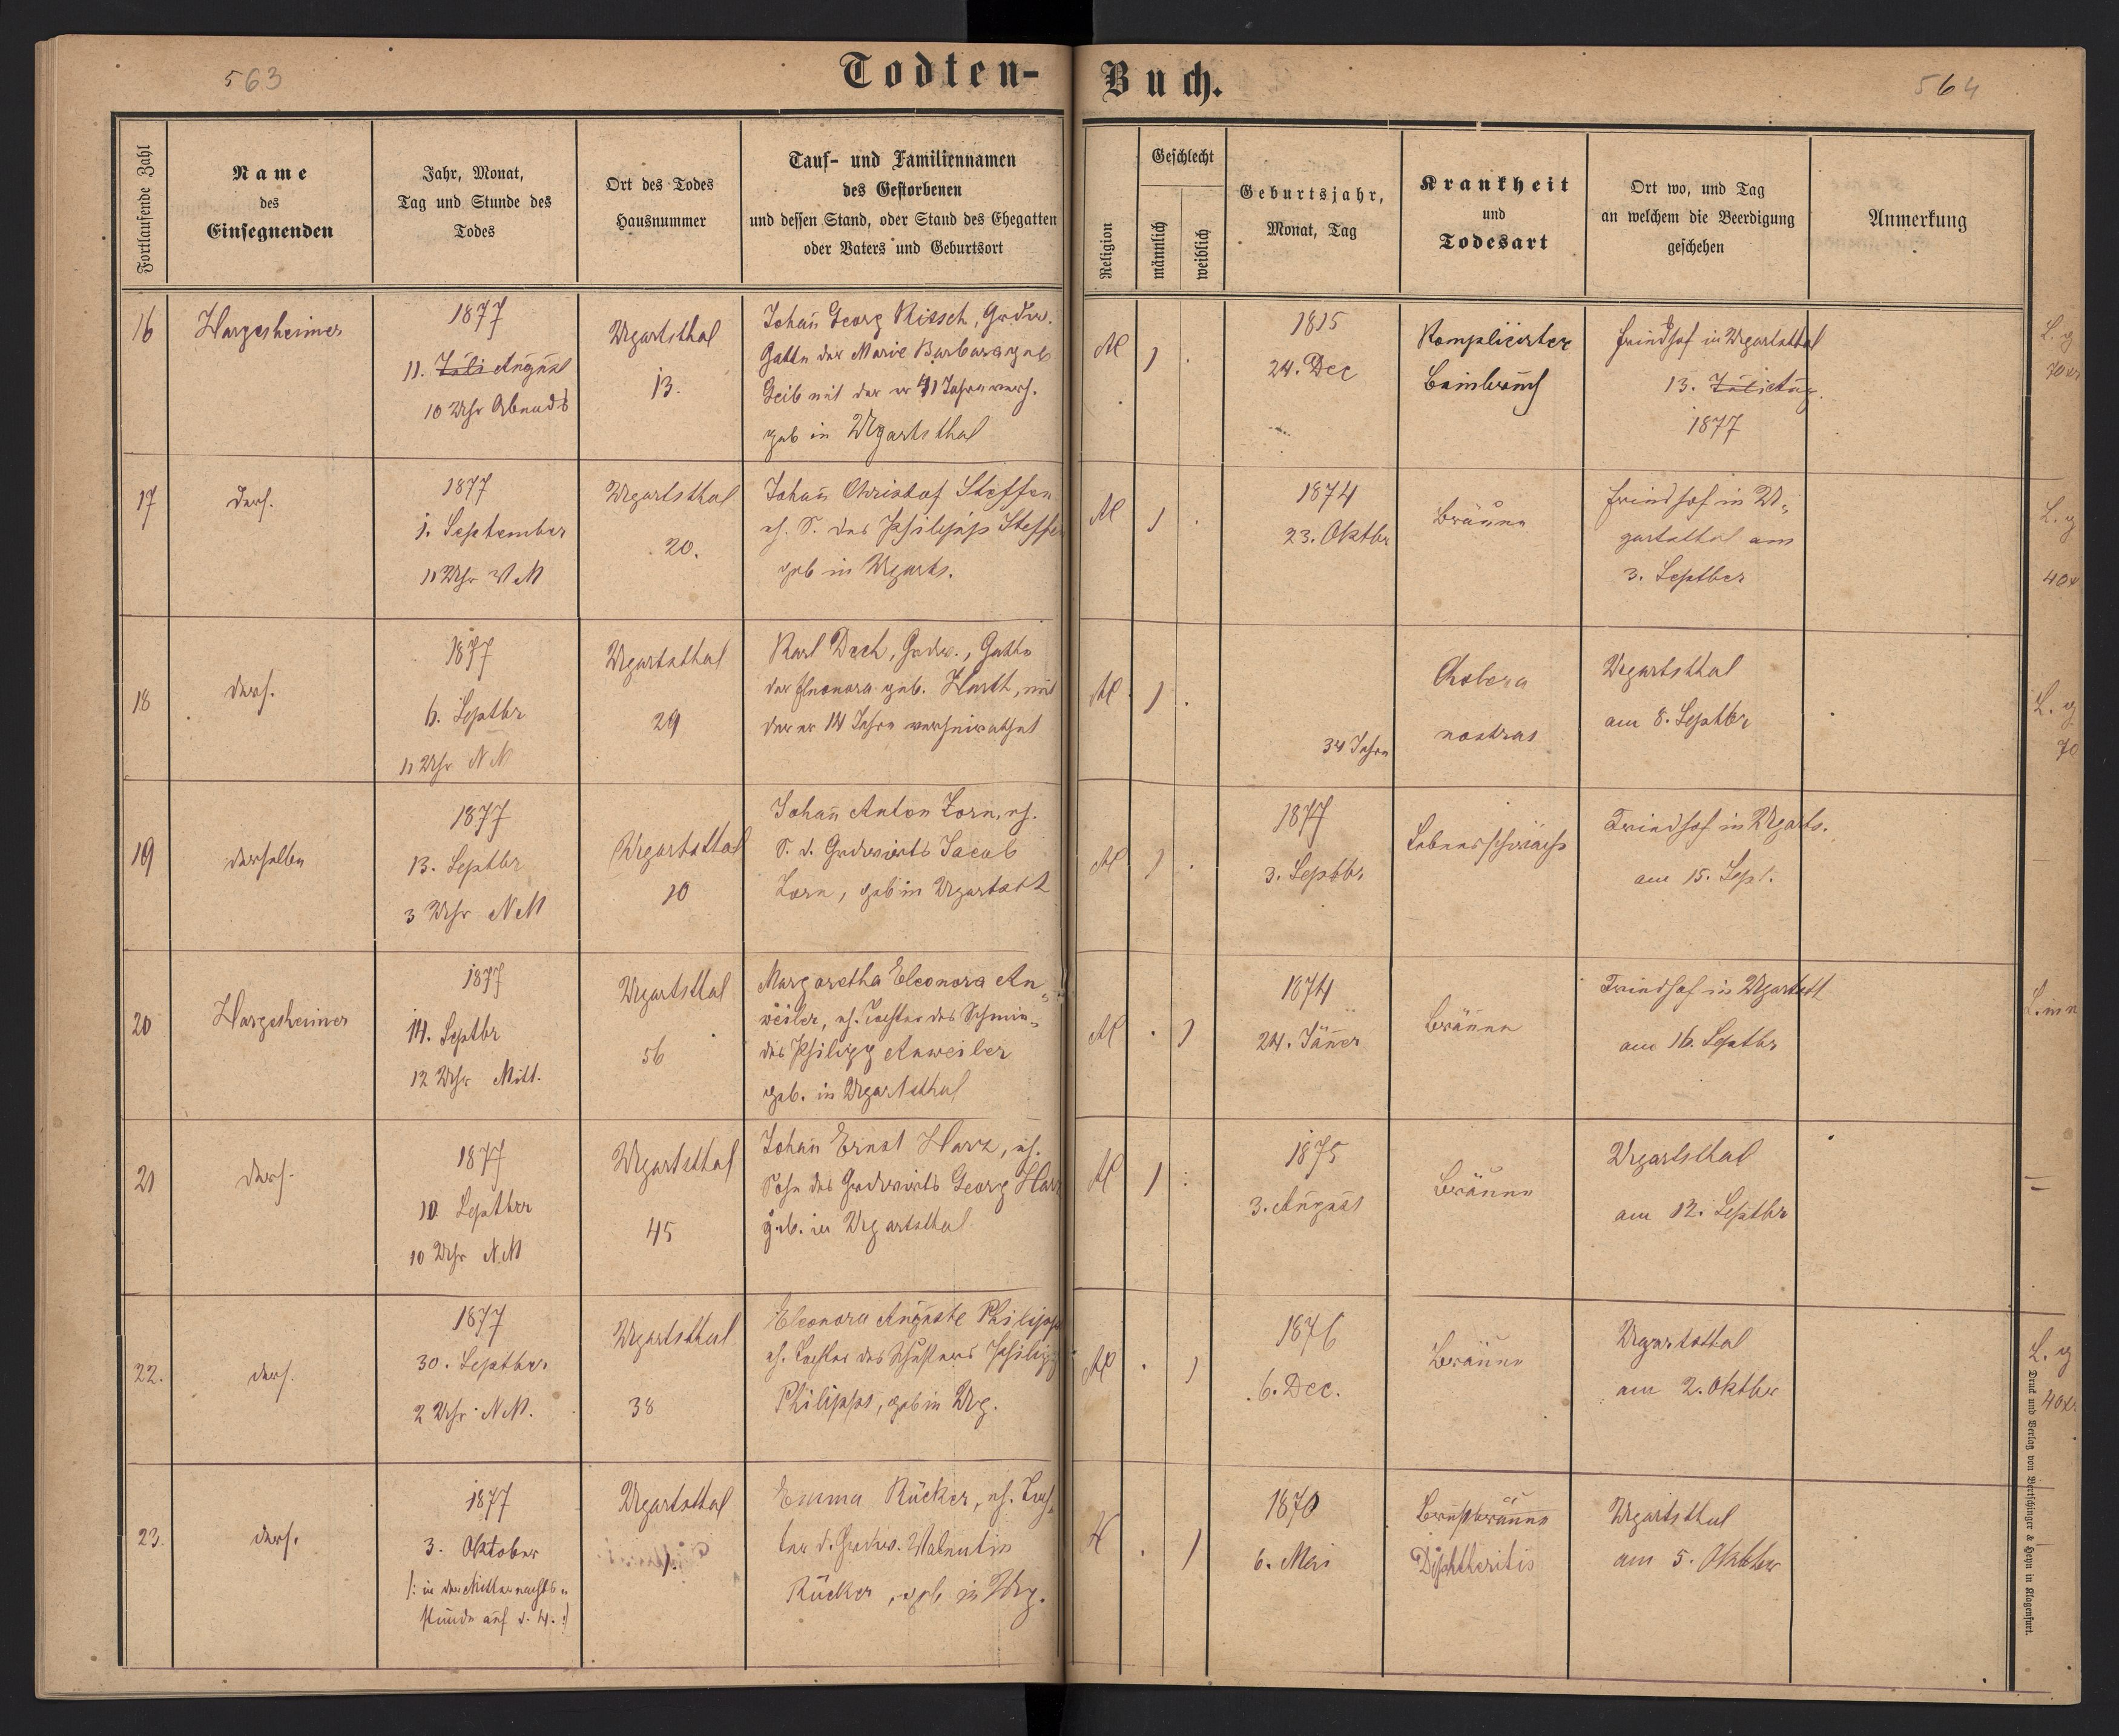 563
Todten-
Buch.
564
Fortlaufende Zahl
Name
des
Einsegnenden
Jahr, Monat,
Tag und Stunde des
Todes
Ort des Todes
Hausnummer
Tauf- und Familiennamen
des Gestorbenen
und dessen Stand, oder Stand des Ehegatten
oder Vaters und Geburtsort
Religion
Geschlecht
männlich
weiblich
Geburtsjahr,
Monat, Tag
Krankheit
und
Todesart
Ort wo, und Tag
an welchem die Beerdigung
geschehen
Anmerkung
16
Hargesheimer
1877
11. Juli August
10 Uhr Abends
Ugartsthal
13.
Johañ Georg Kissch, Grdw.
Gatte der Marie Barbara geb
Geib mit der er 41 Jahre verh.
geb in Ugartsthal
1815
24. Dec
Komplicirter
Beinbruch
Friedhof in Ugartsthal
13. Juli Aug.
1877
L. g
70 xr
17
ders.
1877
1. September
11 Uhr VM
Ugartsthal
20.
Johañ Christof Steffen
eh. S. des Philipp Steffen
geb in Ugarts.
1874
23. Oktbr
Bräune
Friedhof in U-
gartsthal am
3. Septber
L. g
40x
18
ders.
1877
6. Septbr
11 Uhr NM
Ugartsthal
29
Karl Dech, Grdw., Gatte
der Eleonora geb. Harth, mit
der er 14 Jahre verheirathet
34 Jahre
Cholera
nostras
Ugartsthal
am 8. Septbr
L. g
70
19
derselbe
1877
13. Septbr
3 Uhr NM
Ugartsthal
10
Johañ Anton Zorn, eh.
S. d. Grdwirts Jacob
Zorn, geb in Ugartsth
1877
3. Septbr.
Lebensschwäche
Friedhof in Ugarts.
am 15. Sept.
20
Hargesheimer
1877
14. Septbr
12 Uhr Mitt.
Ugartsthal
56
Margaretha Eleonora An-
weiler, eh. Tochter des Schmie-
des Philipp Anweiler
geb. in Ugartsthal
1874
24. Jäner
Bräune
Friedhof in Ugartsth
am 16. Septbr
21
ders.
1877
10. Septber
10 Uhr NM
Ugartsthal
45
Johañ Ernst Harz, eh.
Sohn des Grdwirts Georg Harz
geb. in Ugartsthal
1875
3. August
Bräune
Ugartsthal
am 12. Septbr
22.
ders.
1877
30. Septber.
2 Uhr NM.
Ugartsthal
38
Eleonora Auguste Philipps
eh. Tochter des Schusters Philipp
Philipps, geb in Ug.
1876
6. Dec.
Bräune
Ugartsthal
am 2. Oktber
L. g
40x.
23.
ders.
1877
3. Oktober
/: in der Mitternachts-
stunde auf d. 4. :/
Ugartsthal
1.
Emma Rücker, eh. Toch-
ter d. Grdw. Valentin
Rücker, geb in Ug.
1870
6. Mai
Diphtheritis
Ugartsthal
am 5. Oktber
Druck und Verlag von Bertschinger & Heyn in Klagenfurt.